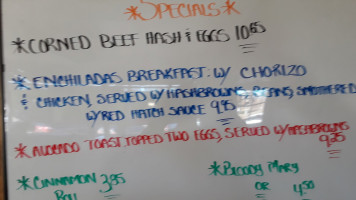 *SPECIALS*
*CORNED BEEF HASH & EGGS 10.65
*ENCHILADAS BREAKFAST W/ CHORIZO
& CHICKEN, SERVED W/HASHBROWNS, BEANS, SMOTHERED
W/RED HATCH SAUCE 9.95
*AVOCADO TOAST, TOPPED TWO EGGS, SERVED W/HASHBROWNS
9.35
*CINNAMON 3.95
ROLL
*BLOODY MARY
OR 4.50